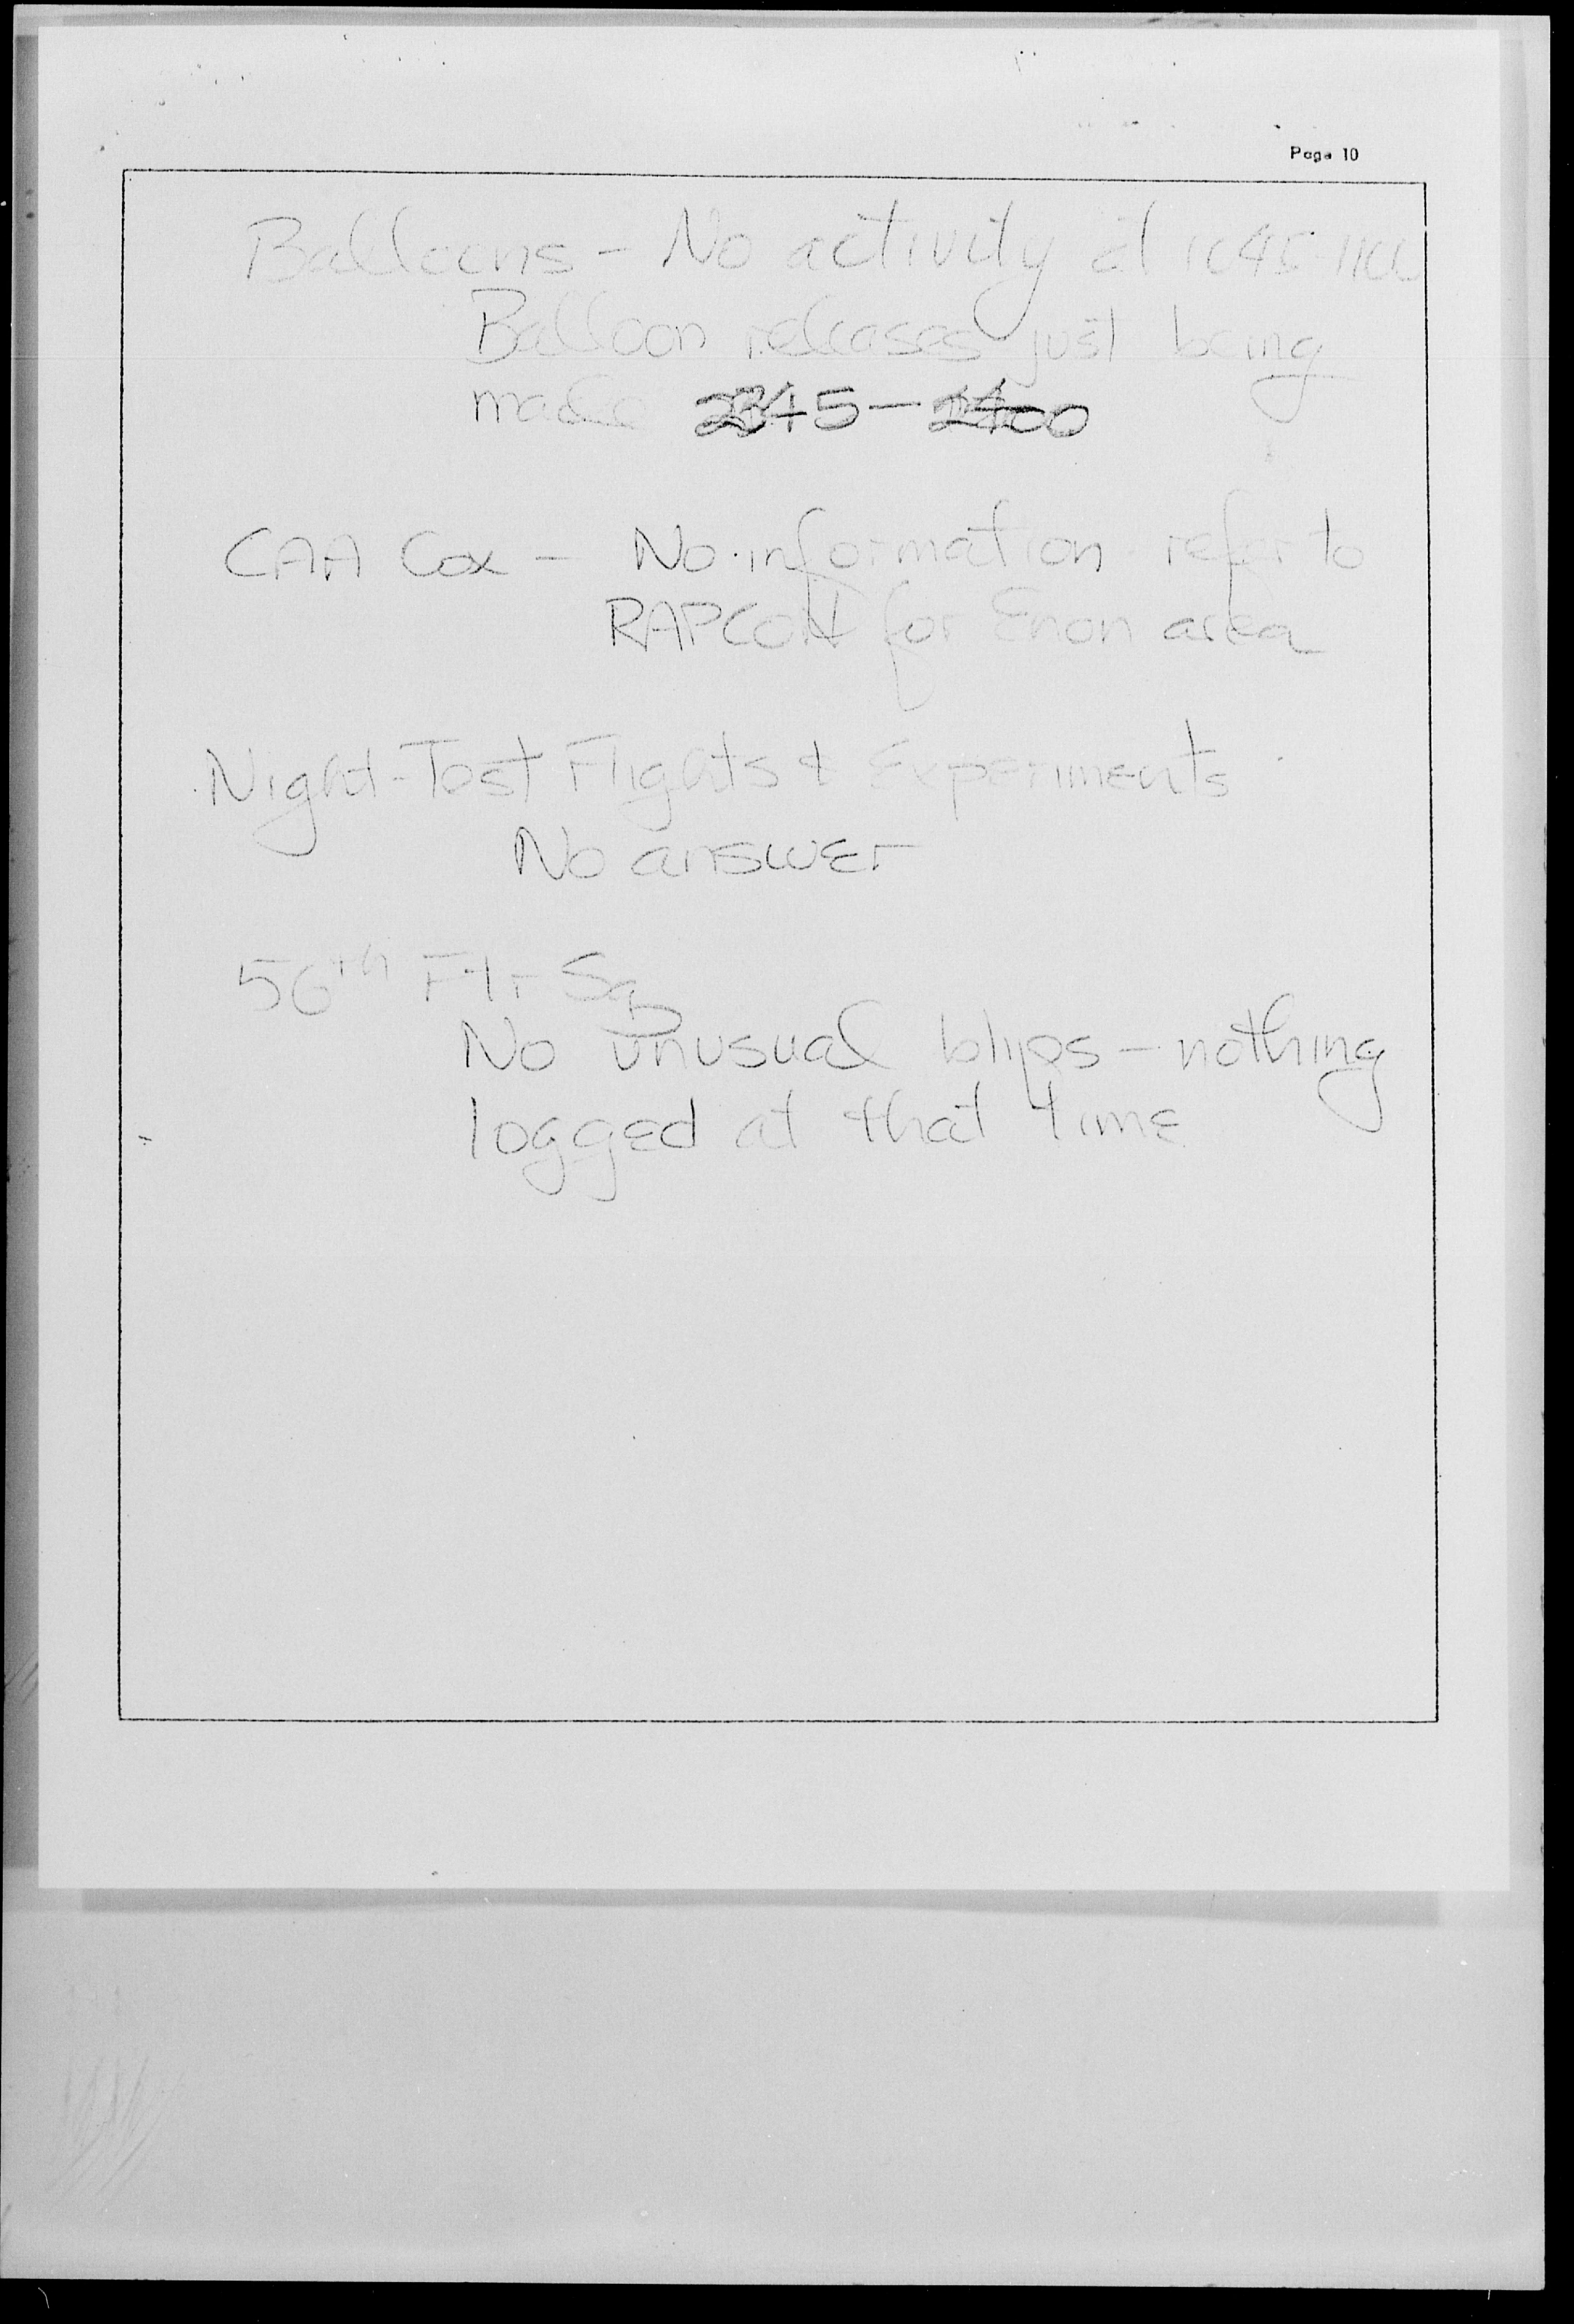 Page 10
Balloons - No activity at 1045-1100
Balloon releases just being
made 2345-2400
CAA Cox - No information refer to
RAPCON for Enon area
Night-Test Flights & Experiments
No answer
56th Ftr Sq
No unusual blips - nothing
logged at that time